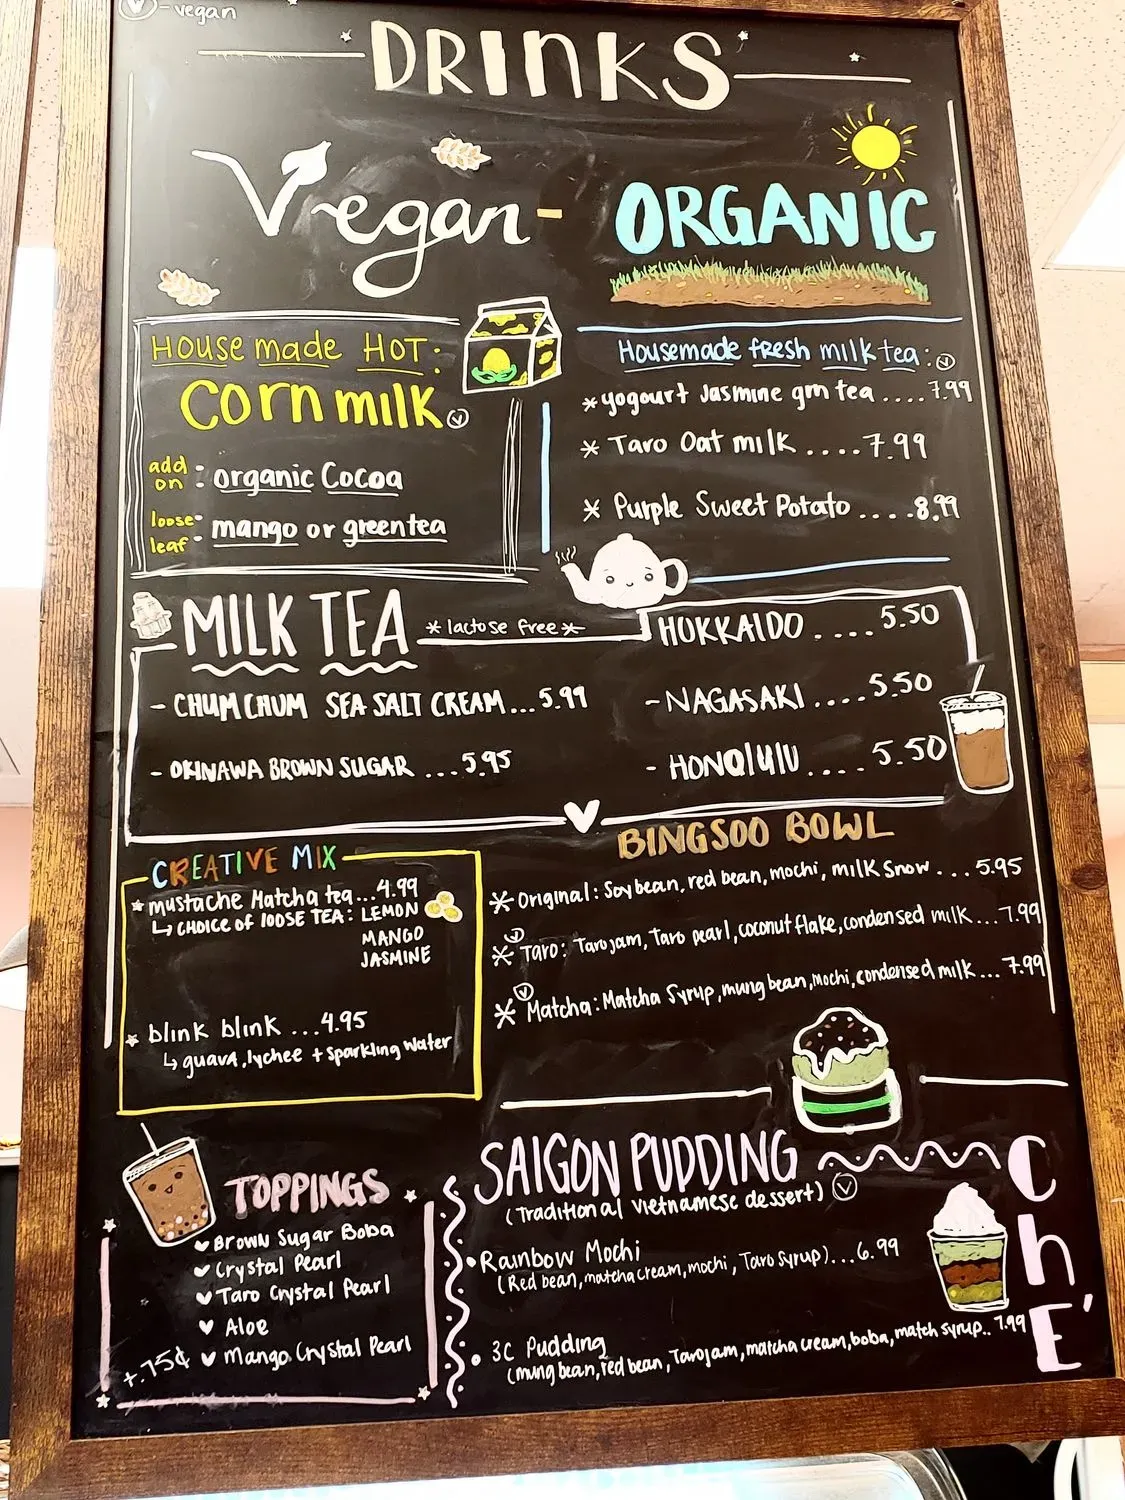 Ⓥ - vegan
DRINKS
Vegan - ORGANIC
House made HOT:
Corn milk Ⓥ
add on : organic Cocoa
loose leaf : mango or green tea
Housemade fresh milk tea: Ⓥ
* yogourt Jasmine grn tea .... 7.99
* Taro Oat milk .... 7.99
* Purple Sweet Potato .... 8.99
MILK TEA *lactose free*
- CHUM CHUM SEA SALT CREAM ... 5.99
- OKINAWA BROWN SUGAR ... 5.95
HOKKAIDO .... 5.50
- NAGASAKI .... 5.50
- HONOlUlU .... 5.50
CREATIVE MIX
* mustache Matcha tea ... 4.99
↳ CHOICE of lOOSE TEA: LEMON
MANGO
JASMINE
* blink blink ... 4.95
↳ guava, lychee + sparkling water
BINGSOO BOWL
* Original: Soy bean, red bean, mochi, milk Snow ... 5.95
* Ⓥ Taro: Taro jam, Taro pearl, coconut flake, condensed milk ... 7.99
* Ⓥ Matcha: Matcha Syrup, mung bean, Mochi, condensed milk ... 7.99
TOPPINGS
Brown Sugar Boba
Crystal Pearl
Taro Crystal Pearl
Aloe
+.75¢ Mango Crystal Pearl
SAIGON PUDDING
(Traditional vietnamese dessert) Ⓥ
• Rainbow Mochi
(Red bean, matcha cream, mochi, Taro syrup) ... 6.99
• 3C Pudding
(mung bean, red bean, Taro jam, matcha cream, boba, match syrup.. 7.99
ChE'